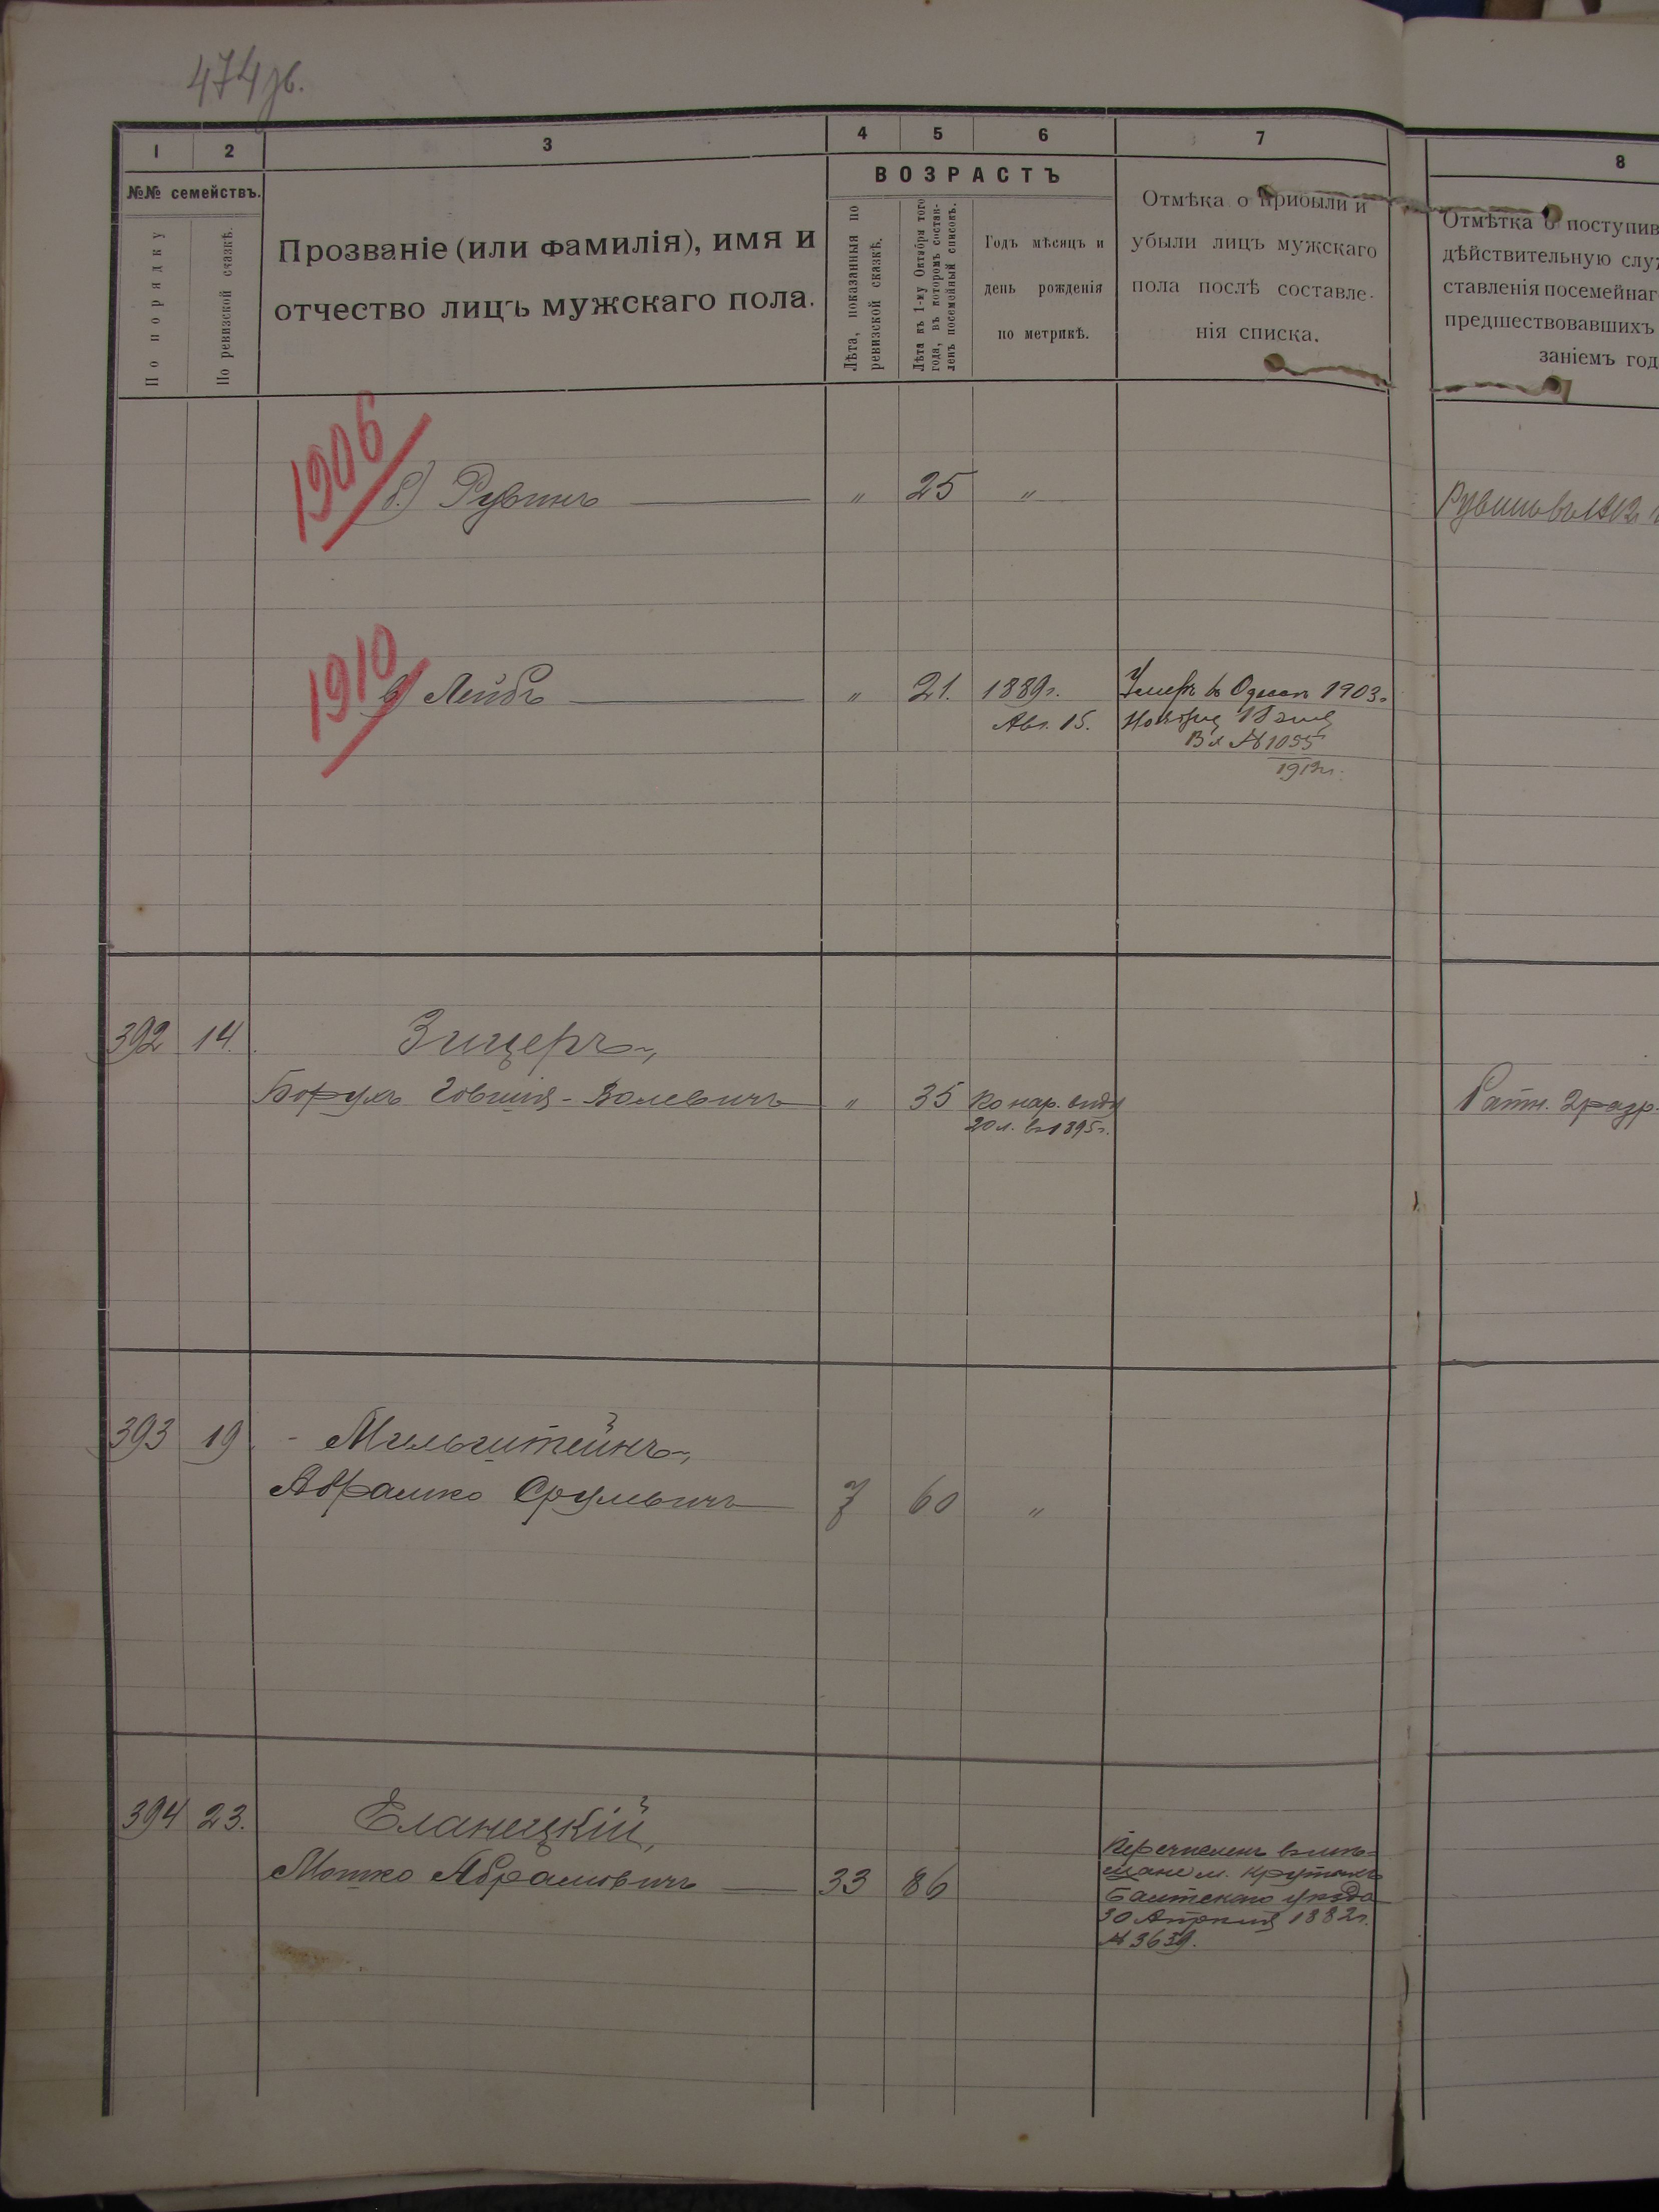 474 зв.
1 2 3 4 5 6 7 8
№№ семействъ.
По порядку
По ревизской сказкѣ.
Прозваніе (или фамилія), имя и
отчество лицъ мужскаго пола.
ВОЗРАСТЪ
Лѣта, показанныя по
ревизской сказкѣ.
Лѣта къ 1-му Октября того
года, въ которомъ состав-
ленъ посемейный списокъ.
Годъ мѣсяцъ и
день рожденія
по метрикѣ.
Отмѣка о прибыли и
убыли лицъ мужскаго
пола послѣ составле-
нія списка.
Отмѣтка о поступив
дѣйствительную слу
ставленія посемейнаг
предшествовавшихъ
заніемъ год
1906
б.) Рувинъ " 25 "
Рувинъ въ 1912
1910
в) Лейбъ " 21. 1889г. Умеръ въ Одессѣ 1903г.
Авг. 15. Ноября
№ 1055
1912г.
392 14. Зицеръ,
Борухъ Іовшія-Волевичъ " 35 По нар. виду Ратн. 2 разр.
20 л. въ 1895г.
393 19 Мильштейнъ,
Абрамко Срулевичъ 7 60 "
394 23. Еланецкій,
Мошко Абрамовичъ 33 86
Перечисленъ въ мѣ-
щане м. Крутыхъ
Балтскаго уѣзда
30 Апрѣля 1882г.
№ 3639.